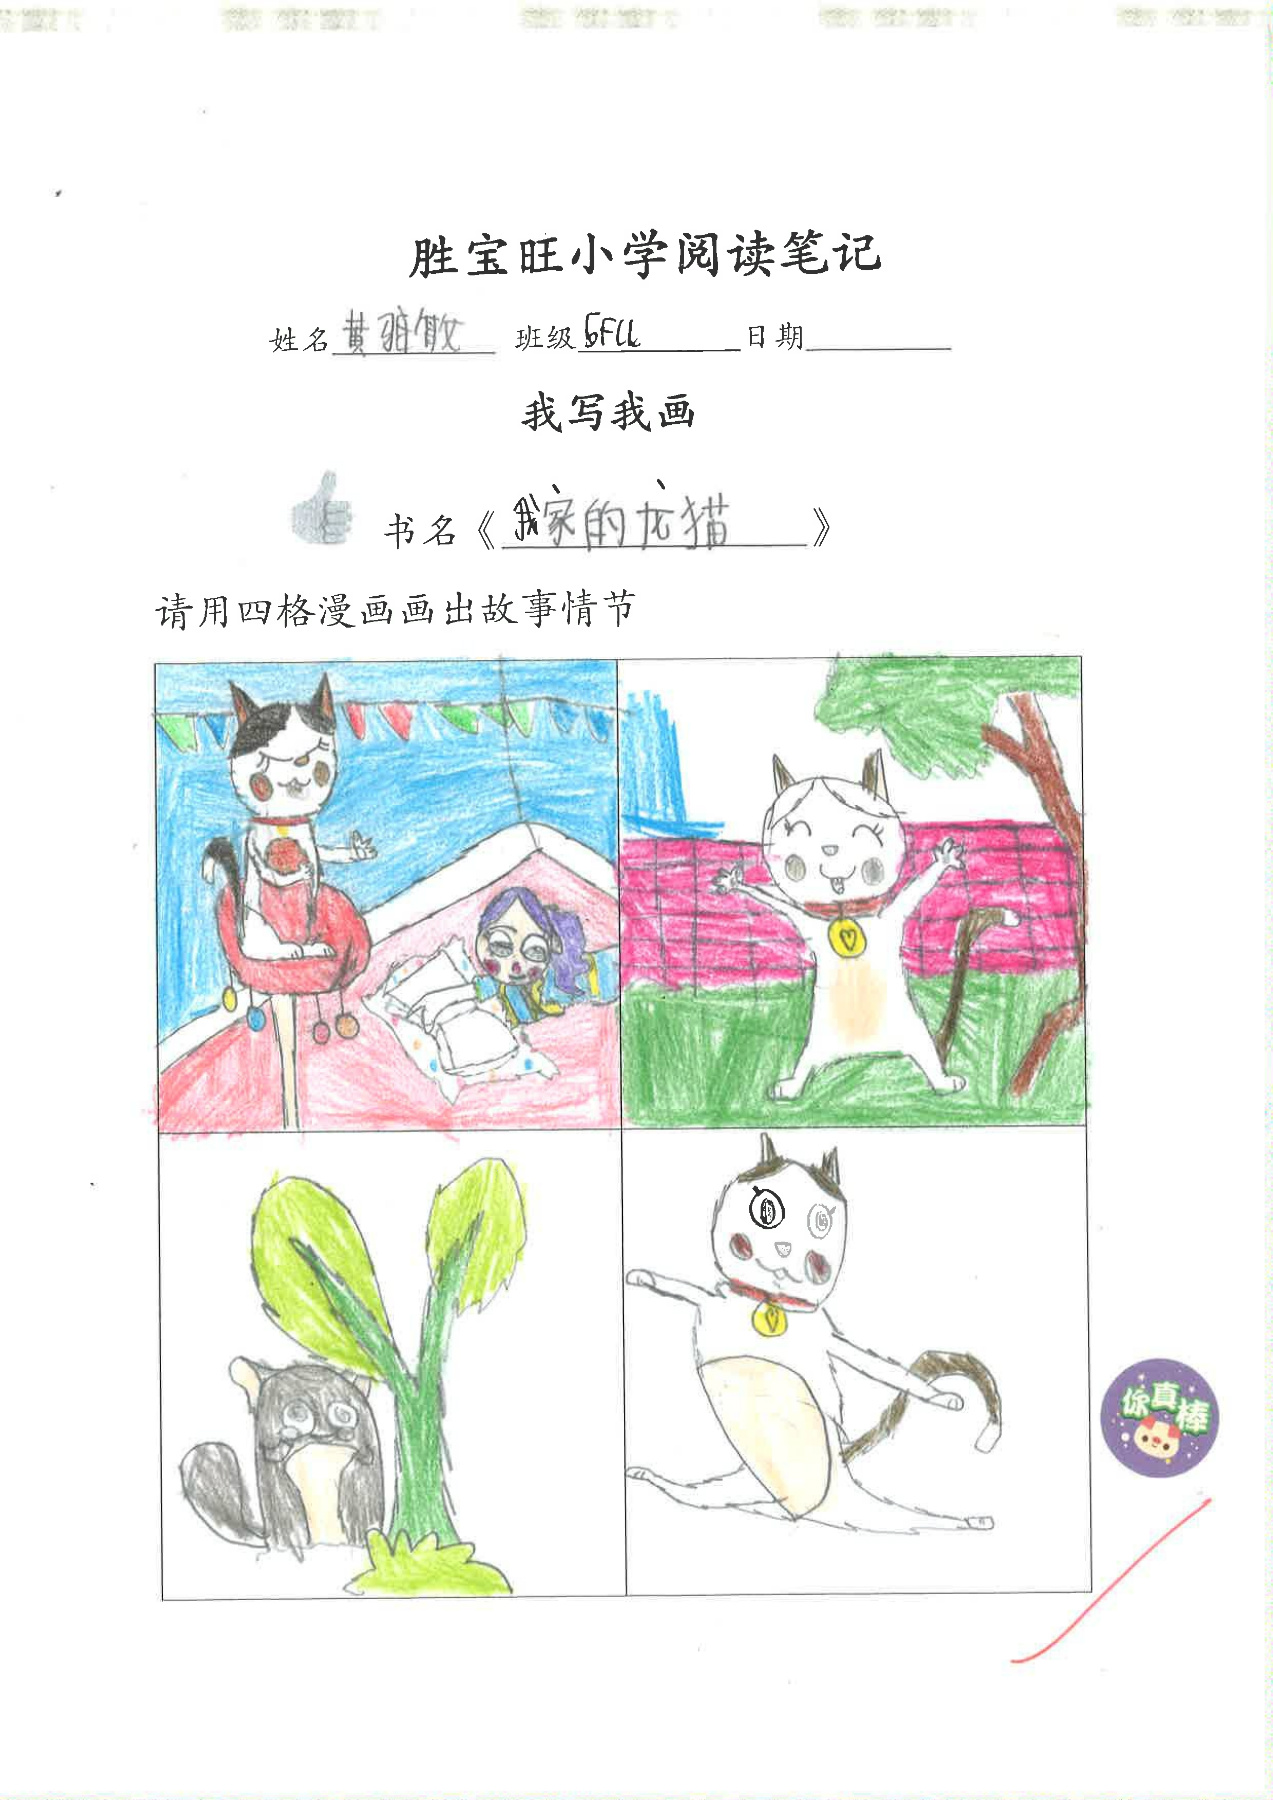 胜宝旺小学阅读笔记
姓名 黄雅敏 班级 5FCL 日期
我写我画
书名《我家的龙猫》
请用四格漫画画出故事情节
你真棒